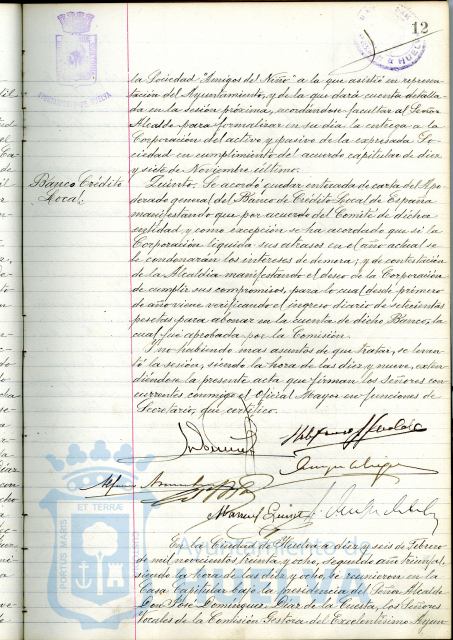 12
la Sociedad "Amigos del Niño" a la que asistió en represen-
tación del Ayuntamiento, y de la que dará cuenta detalla-
da en la sesión próxima, acordándose facultar al Señor
Alcalde para formalizar en su día la entrega a la
Corporación del activo y pasivo de la expresada So-
ciedad en cumplimiento del acuerdo capitular de diez
y siete de Noviembre último.
Banco Crédito
Local.
Quinto. Se acordó quedar enterada de carta del Apo-
derado general del Banco de Crédito Local de España
manifestando que por acuerdo del Comité de dicha
entidad, y como excepción se ha acordado que si la
Corporación liquida sus atrasos en el año actual se
le condonarán los intereses de demora; y de contestación
de la Alcaldía manifestando el deseo de la Corporación
de cumplir sus compromisos, para lo cual desde primero
de año viene verificando el ingreso diario de setecientas
pesetas para abonar en la cuenta de dicho Banco, la
cual fué aprobada por la Comisión.
Y no habiendo mas asuntos de que tratar, se levan-
tó la sesión, siendo la hora de las diez y nueve, exten-
diéndose la presente acta que firman los Señores con-
currentes conmigo el Oficial Mayor en funciones de
Secretario, que certifico.
Manuel
En la Ciudad de Huelva a diez y seis de Febrero
de mil novecientos treinta y ocho, segundo año triunfal,
siendo la hora de las diez y ocho, se reunieron en la
Casa Capitular bajo la presidencia del Señor Alcalde
Don José Domínguez Díaz de la Cuesta, los Señores
Vocales de la Comisión Gestora del Excelentísimo Ayun-
PORTUS MARIS
ET TERRÆ
Ayuntamiento de